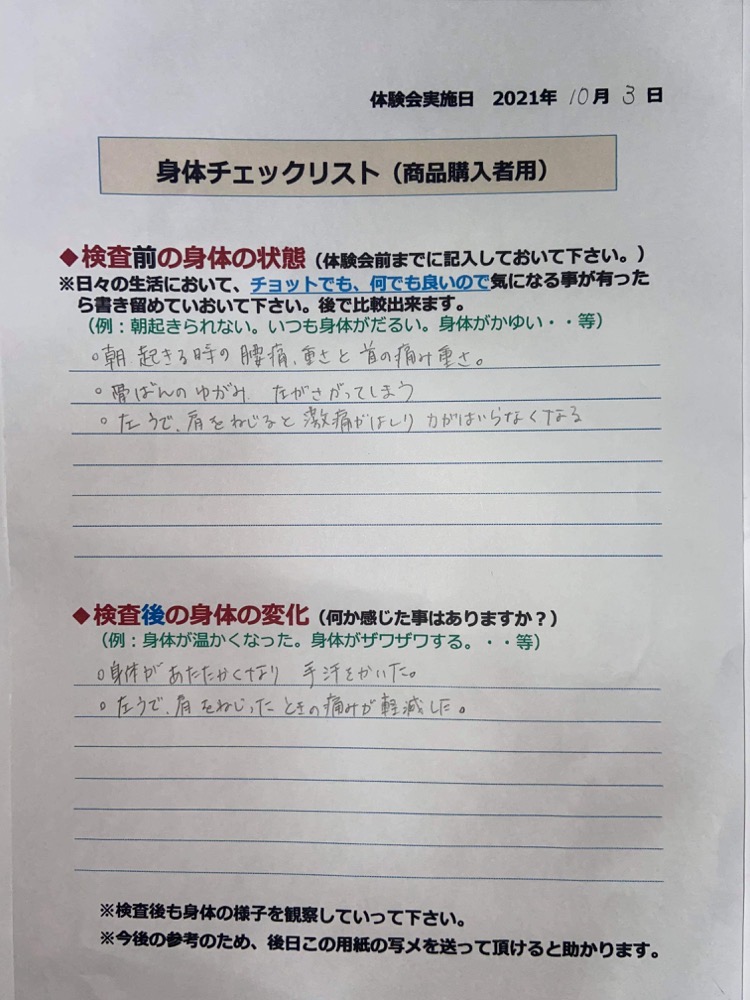 体験会実施日 2021年 10月 3日
身体チェックリスト（商品購入者用）
◆検査前の身体の状態（体験会前までに記入しておいて下さい。）
※日々の生活において、チョットでも、何でも良いので気になる事が有った
ら書き留めていおいて下さい。後で比較出来ます。
（例：朝起きられない。いつも身体がだるい。身体がかゆい・・等）
○朝起きる時の腰痛、重さと首の痛み重さ。
○骨ばんのゆがみ 左がさがってしまう
○左うで、肩をねじると激痛がはしり力がはいらなくなる
◆検査後の身体の変化（何か感じた事はありますか？）
（例：身体が温かくなった。身体がザワザワする。・・等）
○身体があたたかくなり 手汗をかいた。
○左うで、肩をねじったときの痛みが軽減した。
※検査後も身体の様子を観察していって下さい。
※今後の参考のため、後日この用紙の写メを送って頂けると助かります。